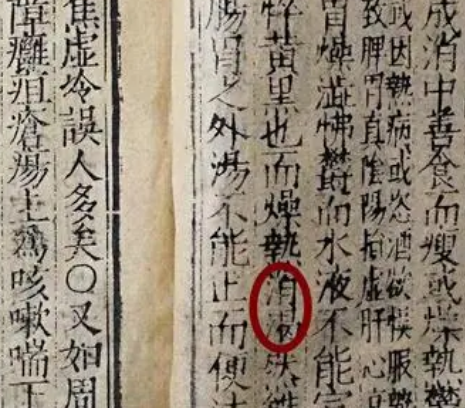 成消中善食而瘦或燥熱鬱
或因熱病或恣酒欲悞服熱
致脾胃真陰陽損虛肝心
胃燥澁怫鬱而水液不能
黃黑也而燥熱消渴然雖
腸胃之外渴不能止而便
焦虛冷誤人多矣○又如周
障癰疽瘡瘍上為咳嗽喘下